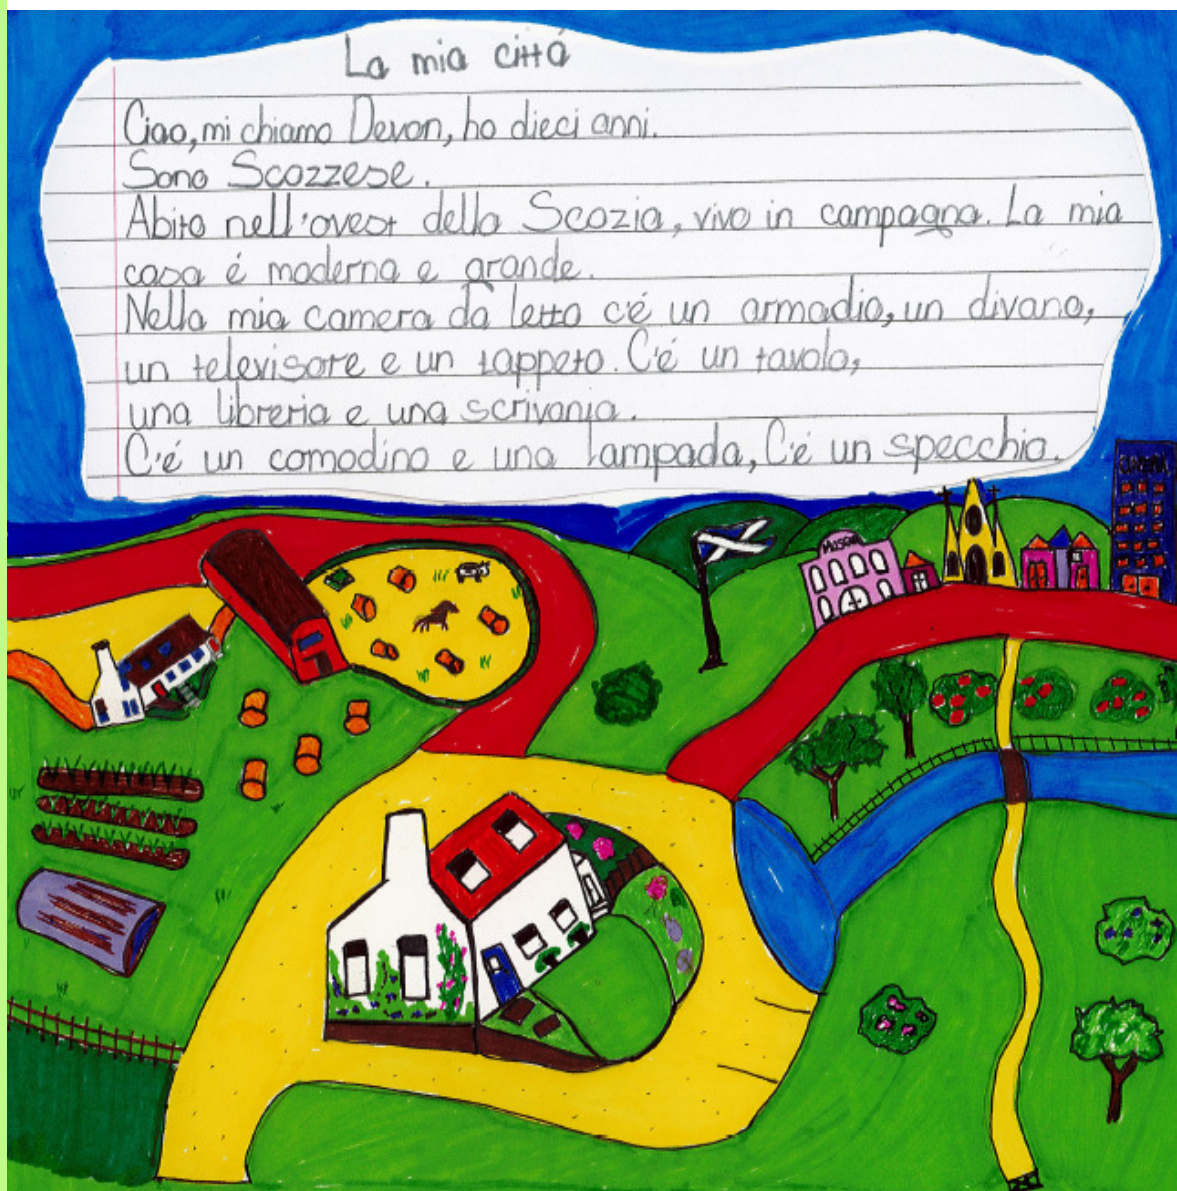 La mia cittá
Ciao, mi chiamo Devon, ho dieci anni.
Sono Scozzese.
Abito nell'ovest della Scozia, vivo in campagna. La mia
casa é moderna e grande.
Nella mia camera da letto c'é un armadio, un divano,
un televisore e un tappeto. C'é un tavolo,
una libreria e una scrivania.
C'é un comodino e una lampada, C'é un specchio.